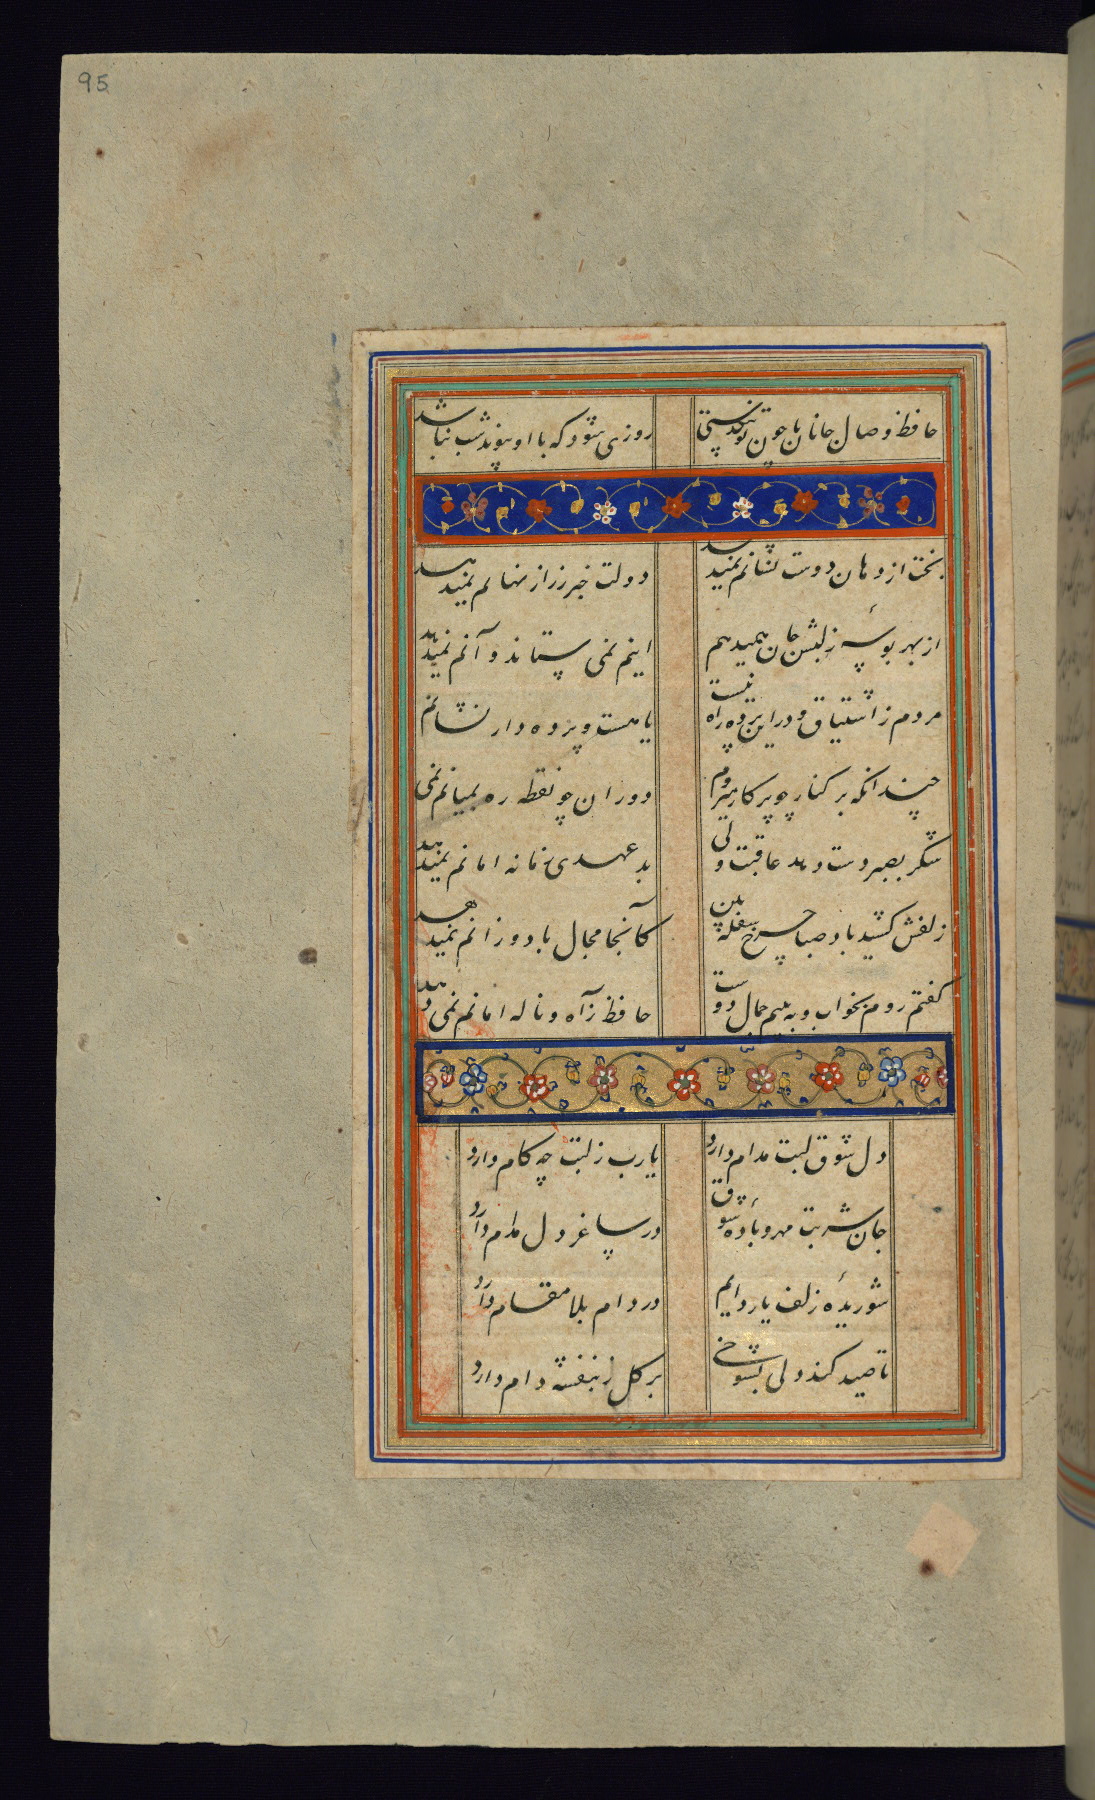 95
حافظ وصال جانان با چون تو تنگدستی روزی شود که با او پیوند شب نباشد
بخت از دهان دوست نشانم نمیدهد دولت خبر ز راز نهانم نمیدهد
از بهر بوسهٔ ز لبش جان همیدهم اینم نمی ستاند و آنم نمیدهد
مردم ز اشتیاق و درین پرده راه نیست یا هست و پرده دار نشانم
چندانکه بر کنار چو پرکار میروم دوران چو نقطه ره بمیانم نمی
شکر بصبر دست دهد عاقبت ولی بد عهدی زمانه امانم نمیدهد
زلفش کشید باد صبا چرخ سفله بین کانجا مجال باد وزانم نمیدهد
گفتم روم بخواب و به بینم جمال دوست حافظ ز آه و ناله امانم نمی دهد
دل شوق لبت مدام دارد یارب ز لبت چه کام دارد
جان شربت مهر و بادهٔ شوق در ساغر دل مدام دارد
شوریدهٔ زلف یار دایم در دام بلا مقام دارد
تا صید کند دلی بشوخی بر گل ز بنفشه دام دارد